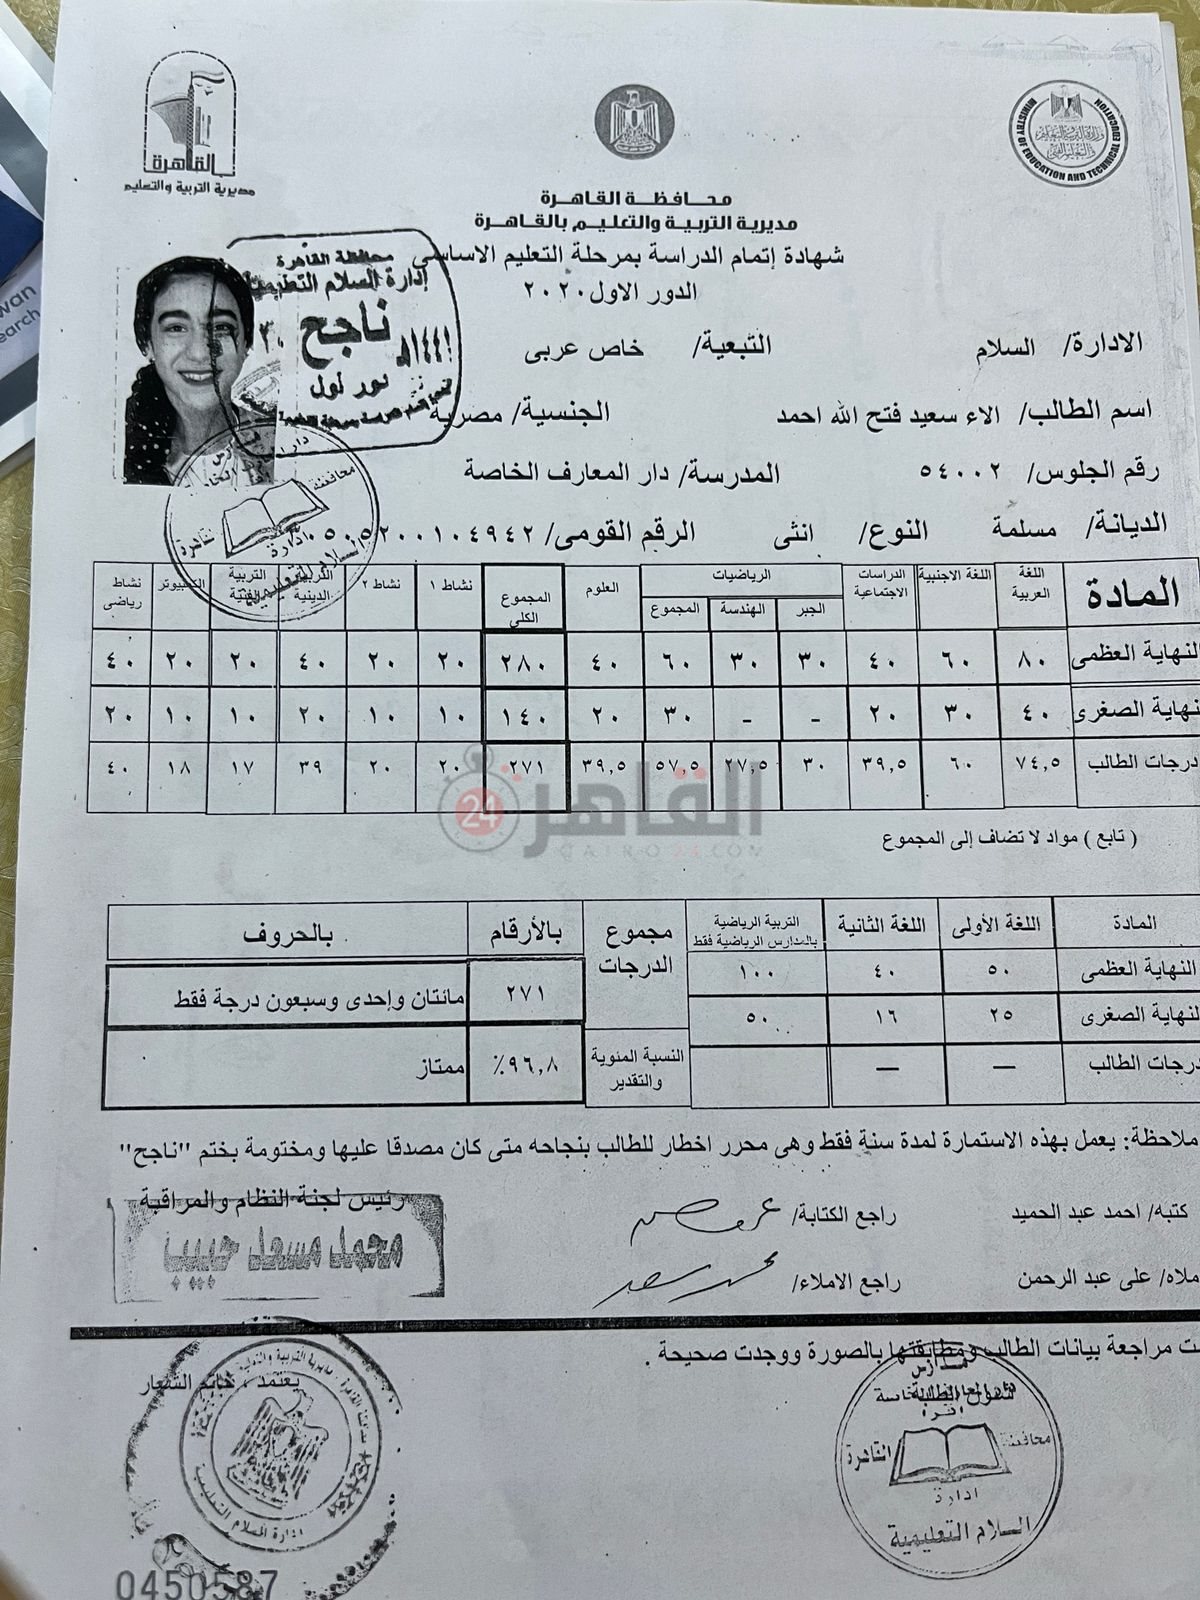 القاهرة
مديرية التربية والتعليم
MINISTRY OF EDUCATION AND TECHNICAL EDUCATION
محافظة القاهرة
مديرية التربية والتعليم بالقاهرة
شهادة إتمام الدراسة بمرحلة التعليم الاساسي
الدور الاول ٢٠٢٠
محافظة القاهرة
إدارة السلام التعليمية
ناجح
١٤٤١هـ
دور اول
الادارة/ السلام التبعية/ خاص عربى
اسم الطالب/ الاء سعيد فتح الله احمد الجنسية/ مصرية
رقم الجلوس/ ٥٤٠٠٢ المدرسة/ دار المعارف الخاصة
الديانة/ مسلمة النوع/ انثى الرقم القومى/
المادة اللغة العربية اللغة الاجنبية الدراسات الاجتماعية الرياضيات الجبر الهندسة المجموع العلوم المجموع الكلى نشاط ١ نشاط ٢ التربية الدينية التربية الفنية الكمبيوتر نشاط رياضى
النهاية العظمى ٨٠ ٦٠ ٤٠ ٣٠ ٣٠ ٦٠ ٤٠ ٢٨٠ ٢٠ ٢٠ ٤٠ ٢٠ ٢٠ ٤٠
نهاية الصغرى ٤٠ ٣٠ ٢٠ - - ٣٠ ٢٠ ١٤٠ ١٠ ١٠ ٢٠ ١٠ ١٠ ٢٠
درجات الطالب ٧٤,٥ ٦٠ ٣٩,٥ ٣٠ ٢٧,٥ ٥٧,٥ ٣٩,٥ ٢٧١ ٢٠ ٢٠ ٣٩ ١٧ ١٨ ٤٠
القاهرة 24
CAIRO24.COM
( تابع ) مواد لا تضاف إلى المجموع
المادة اللغة الأولى اللغة الثانية التربية الرياضية بالمدارس الرياضية فقط مجموع الدرجات بالأرقام بالحروف
النهاية العظمى ٥٠ ٤٠ ١٠٠ ٢٧١ مائتان وإحدى وسبعون درجة فقط
لنهاية الصغرى ٢٥ ١٦ ٥٠
درجات الطالب — — النسبة المئوية والتقدير ٩٦,٨٪ ممتاز
ملاحظة: يعمل بهذه الاستمارة لمدة سنة فقط وهى محرر اخطار للطالب بنجاحه متى كان مصدقا عليها ومختومة بختم "ناجح"
رئيس لجنة النظام والمراقبة
كتبه/ احمد عبد الحميد راجع الكتابة/
محمد مسعد حبيب
ملاه/ على عبد الرحمن راجع الاملاء/
ت مراجعة بيانات الطالب ومطابقتها بالصورة ووجدت صحيحة .
يعتمد ، خاتم الشعار
شئون الطلبة
محافظة القاهرة
ادارة
السلام التعليمية
إدارة السلام التعليمية
0450587